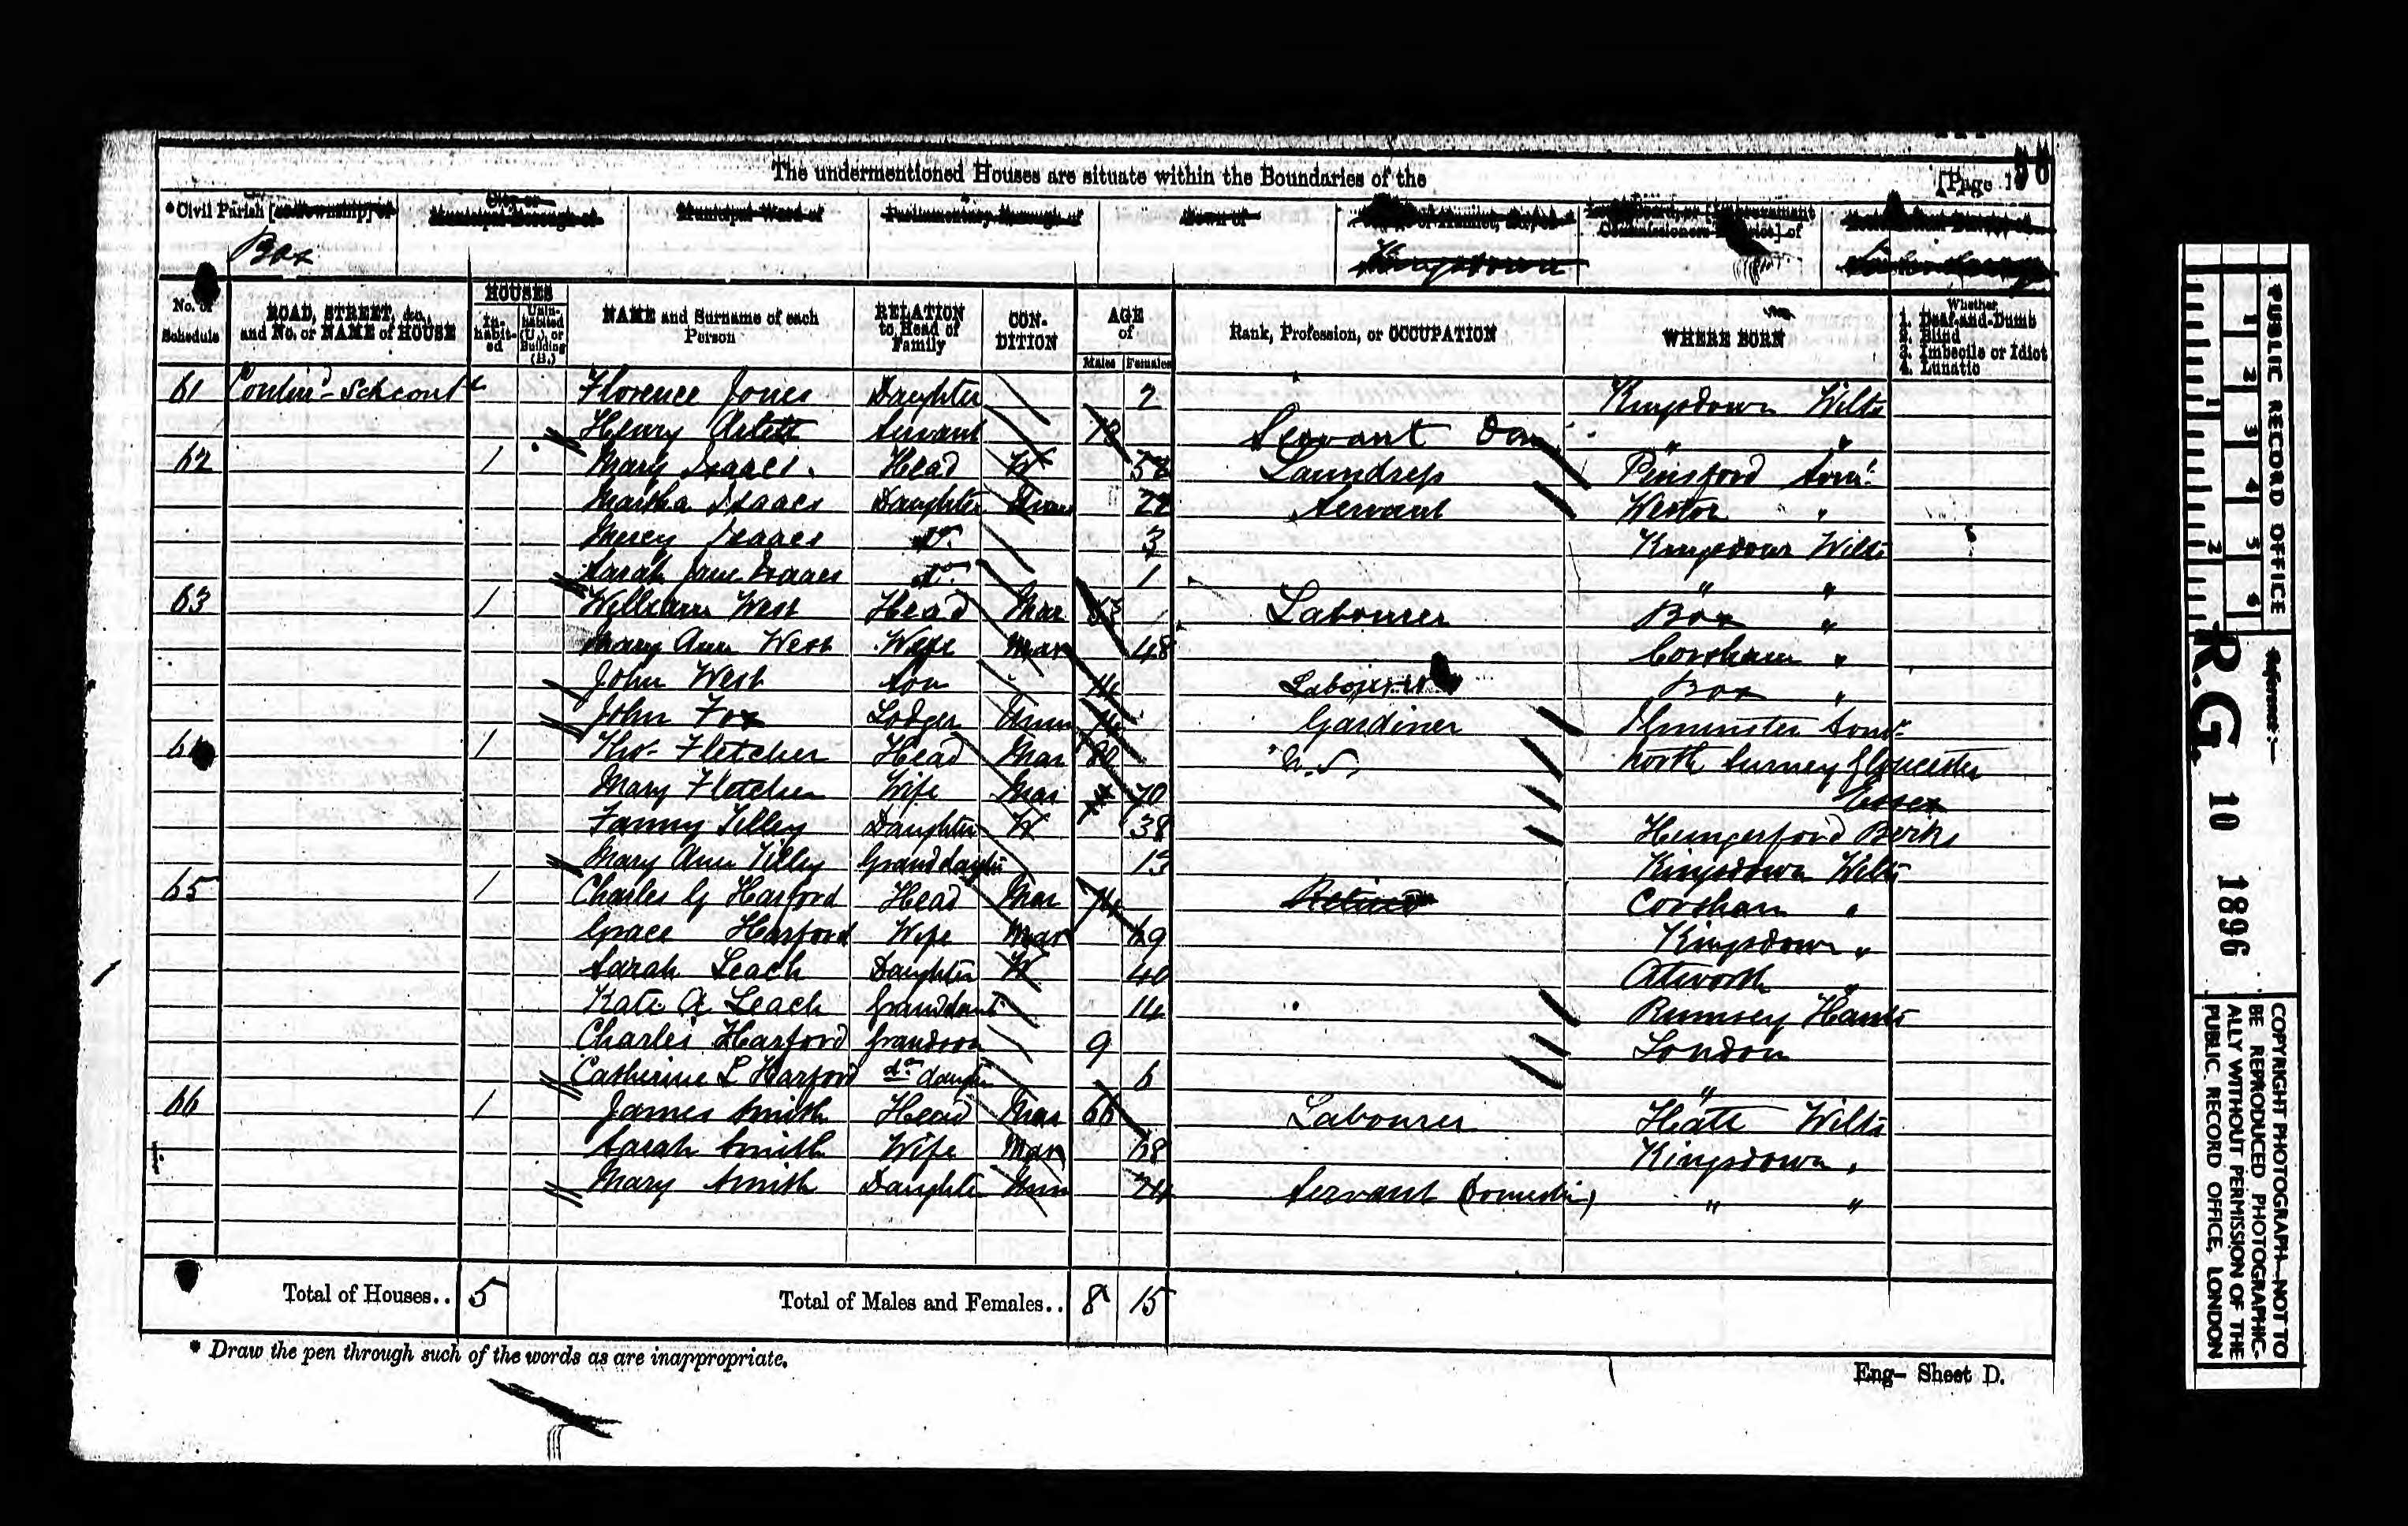 The undermentioned Houses are situate within the Boundaries of the
[Page 1
* Civil Parish [or Township] of
City or Municipal Borough of
Municipal Ward of
Parliamentary Borough of
Town of
or Hamlet, &c., of
Local Board, or [Improvement Commissioners District] of
Box
Kingsdown
No. of Schedule
ROAD, STREET, &c., and No. or NAME of HOUSE
HOUSES
In-habit-ed
Unin-habited (U.), or Building (B.)
NAME and Surname of each Person
RELATION to Head of Family
CON-DITION
AGE of
Males Females
Rank, Profession, or OCCUPATION
WHERE BORN
Whether
1. Deaf-and-Dumb
2. Blind
3. Imbecile or Idiot
4. Lunatic
61 Florence Jones Daughter 2 Kingsdown Wilts
Henry Servant 18 Servant Dom " "
62 1 Mary Isaacs Head W 58 Laundress Pinsford Som.t
Martha Isaacs Daughter 22 Servant Weston "
Mercy Isaacs do. 3 Kingsdown Wilts
Sarah Jane Isaacs do. 1 " "
63 1 William West Head Mar 53 Labourer Box "
Mary Ann West Wife Mar 48 Corsham "
John West Son 14 Labourer Box "
John Fox Lodger Unm Gardiner Ilminster Som.
1 Thos. Fletcher Head Mar 80 North Gloucester
Mary Fletcher Wife Mar 70 Essex
Fanny Tilley Daughter W 38 Hungerford Berks
Mary Ann Tilley Granddaughter 13 Kingsdown Wilts
65 1 Charles G Harford Head Mar 74 Retired Corsham "
Grace Harford Wife Mar 69 Kingsdown "
Sarah Leach Daughter W 40 Atworth "
Kate A Leach 14 Rumsey Hants
Charles Harford Grandson 9 London
Catherine L Harford do. daughter 6 "
66 1 James Smith Head Mar 66 Labourer Wilts
Sarah Smith Wife Mar 68 Kingsdown "
Mary Smith Daughter Unm 24 Servant (Domestic) " "
Total of Houses.. 5
Total of Males and Females.. 8 15
* Draw the pen through such of the words as are inappropriate.
Eng- Sheet D.
PUBLIC RECORD OFFICE
1 2 3 4 5 6
1 2
Reference:-
R.G. 10 1896
COPYRIGHT PHOTOGRAPH—NOT TO
BE REPRODUCED PHOTOGRAPHIC-
ALLY WITHOUT PERMISSION OF THE
PUBLIC RECORD OFFICE, LONDON